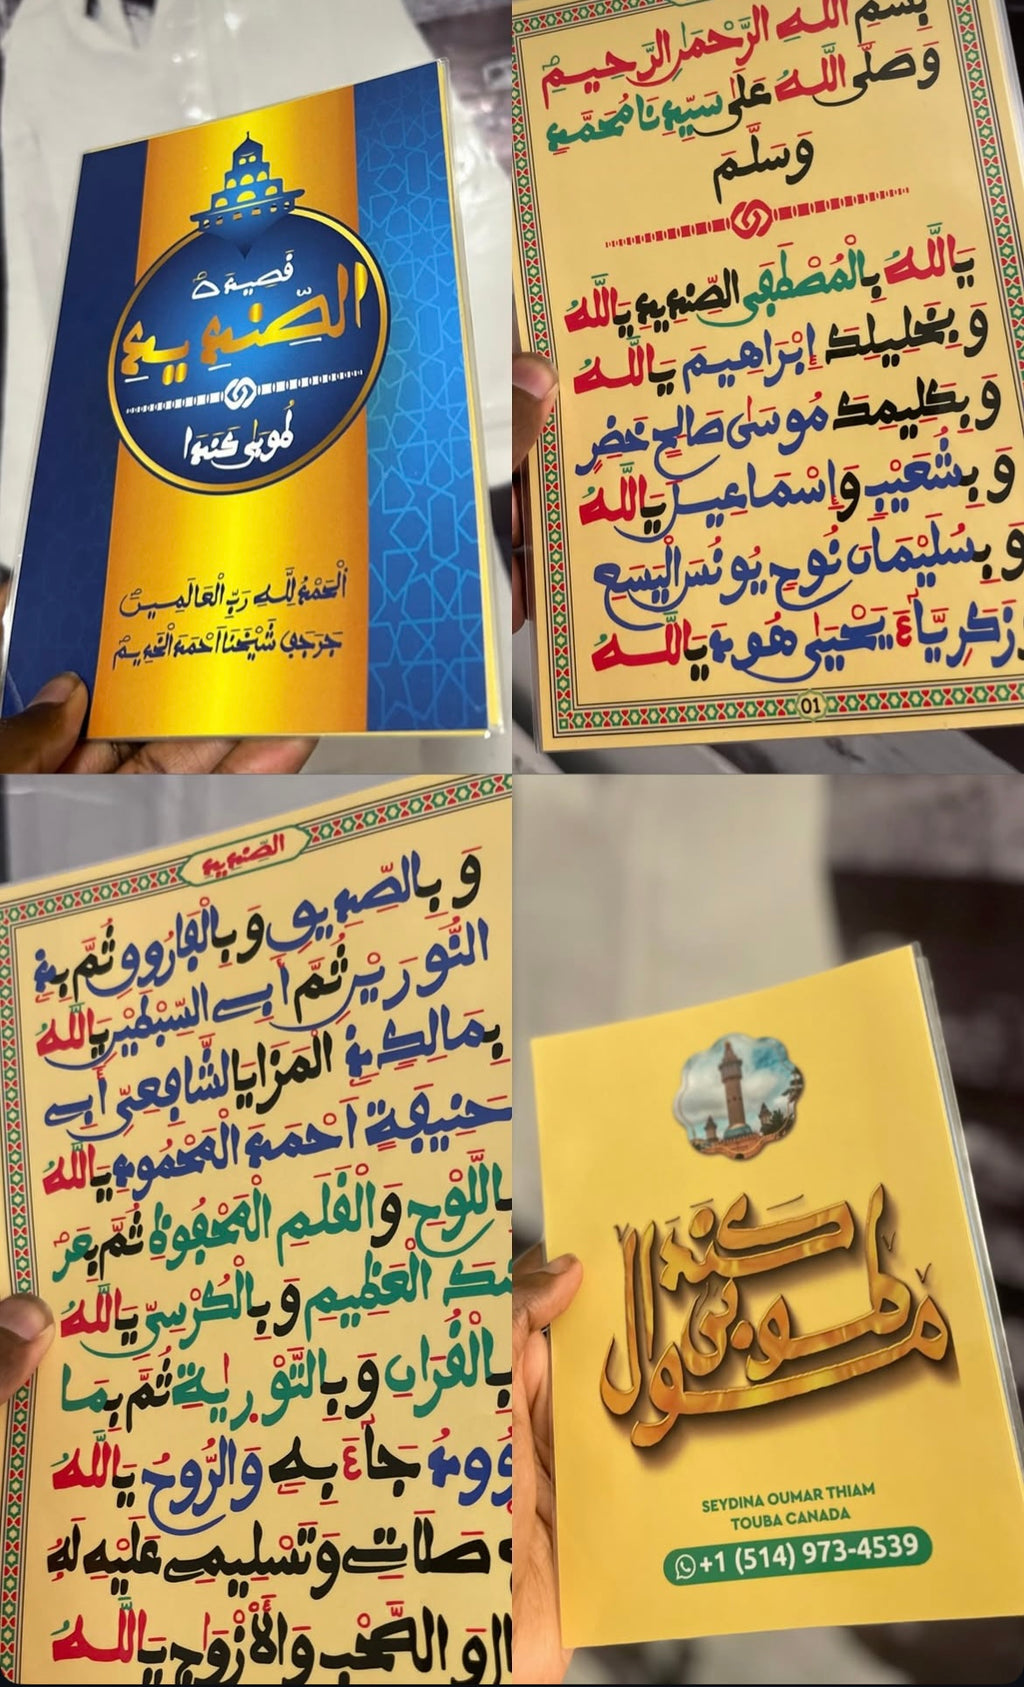 قصيدة
الصنديد
طوبى كندا
الْحَمْدُ لِلَّهِ رَبِّ الْعَالَمِينَ
شَيْخِنَا أَحْمَدَ الْخَدِيمْ
بِسْمِ اللَّهِ الرَّحْمَٰنِ الرَّحِيمِ
وَصَلَّى اللَّهُ عَلَى سَيِّدِنَا مُحَمَّدٍ
وَسَلَّمَ
يَا اللَّهُ بِالْمُصْطَفَى الصِّنْدِيدِ يَا اللَّهُ
وَبِخَلِيلِكَ إِبْرَاهِيمَ يَا اللَّهُ
وَبِكَلِيمِكَ مُوسَىٰ صَالِحٍ خَضِرٍ
وَبِشُعَيْبٍ وَإِسْمَاعِيلَ يَا اللَّهُ
وَبِسُلَيْمَانَ نُوحٍ يُونُسَ الْيَسَعِ
زَكَرِيَّاءَ يَحْيَىٰ هُودٍ يَا اللَّهُ
01
الصِّنْدِيدِ
وَبِالصِّدِّيقِ وَبِالْفَارُوقِ ثُمَّ بِذِي
النُّورَيْنِ ثُمَّ أَبِي السِّبْطَيْنِ يَا اللَّهُ
بِمَالِكٍ ذِي الْمَزَايَا الشَّافِعِيِّ أَبِي
حَنِيفَةٍ أَحْمَدَ الْمَحْمُودِ يَا اللَّهُ
بِاللَّوْحِ وَالْقَلَمِ الْمَحْفُوظِ ثُمَّ بِعَرْ
شِكَ الْعَظِيمِ وَبِالْكُرْسِيِّ يَا اللَّهُ
بِالْقُرَانِ وَبِالتَّوْرَىٰةِ ثُمَّ بِمَا
جَاءَ بِهِ وَالرُّوحُ يَا اللَّهُ
صَلَاتِ وَتَسْلِيمِي عَلَيْهِ لَهُ
وَالصَّحْبِ وَالْأَزْوَاجِ يَا اللَّهُ
طوبى كندا
SEYDINA OUMAR THIAM
TOUBA CANADA
+1 (514) 973-4539